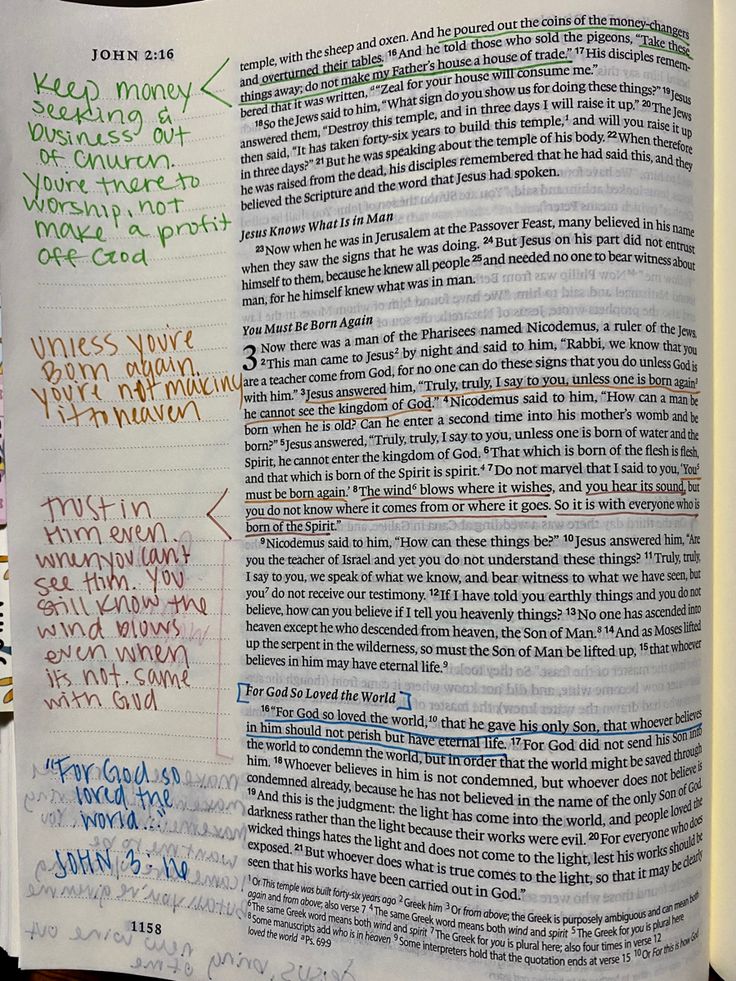 JOHN 2:16
Keep money
seeking &
business out
of Church.
You're there to
worship, not
make a profit
off God
Unless you're
Born again.
you're not making
it to heaven
Trust in
Him even.
when you can't
see Him. You
still know the
wind blows
even when
its not. same
with God
"For God so
loved the
world..."
JOHN 3:16
1158
temple, with the sheep and oxen. And he poured out the coins of the money-changers
and overturned their tables. 16 And he told those who sold the pigeons, “Take these
things away; do not make my Father's house a house of trade.” 17 His disciples remem-
bered that it was written, “Zeal for your house will consume me.”
18 So the Jews said to him, “What sign do you show us for doing these things?” 19 Jesus
answered them, “Destroy this temple, and in three days I will raise it up.” 20 The Jews
then said, “It has taken forty-six years to build this temple,1 and will you raise it up
in three days?” 21 But he was speaking about the temple of his body. 22 When therefore
he was raised from the dead, his disciples remembered that he had said this, and they
believed the Scripture and the word that Jesus had spoken.
Jesus Knows What Is in Man
23 Now when he was in Jerusalem at the Passover Feast, many believed in his name
when they saw the signs that he was doing. 24 But Jesus on his part did not entrust
himself to them, because he knew all people 25 and needed no one to bear witness about
man, for he himself knew what was in man.
You Must Be Born Again
3 Now there was a man of the Pharisees named Nicodemus, a ruler of the Jews.
2 This man came to Jesus2 by night and said to him, “Rabbi, we know that you
are a teacher come from God, for no one can do these signs that you do unless God is
with him.” 3 Jesus answered him, “Truly, truly, I say to you, unless one is born again3
he cannot see the kingdom of God.” 4 Nicodemus said to him, “How can a man be
born when he is old? Can he enter a second time into his mother's womb and be
born?” 5 Jesus answered, “Truly, truly, I say to you, unless one is born of water and the
Spirit, he cannot enter the kingdom of God. 6 That which is born of the flesh is flesh,
and that which is born of the Spirit is spirit.4 7 Do not marvel that I said to you, ‘You5
must be born again.’ 8 The wind6 blows where it wishes, and you hear its sound, but
you do not know where it comes from or where it goes. So it is with everyone who is
born of the Spirit.”
9 Nicodemus said to him, “How can these things be?” 10 Jesus answered him, “Are
you the teacher of Israel and yet you do not understand these things? 11 Truly, truly,
I say to you, we speak of what we know, and bear witness to what we have seen, but
you7 do not receive our testimony. 12 If I have told you earthly things and you do not
believe, how can you believe if I tell you heavenly things? 13 No one has ascended into
heaven except he who descended from heaven, the Son of Man.8 14 And as Moses lifted
up the serpent in the wilderness, so must the Son of Man be lifted up, 15 that whoever
believes in him may have eternal life.9
For God So Loved the World
16 “For God so loved the world,10 that he gave his only Son, that whoever believes
in him should not perish but have eternal life. 17 For God did not send his Son into
the world to condemn the world, but in order that the world might be saved through
him. 18 Whoever believes in him is not condemned, but whoever does not believe is
condemned already, because he has not believed in the name of the only Son of God.
19 And this is the judgment: the light has come into the world, and people loved the
darkness rather than the light because their works were evil. 20 For everyone who does
wicked things hates the light and does not come to the light, lest his works should be
exposed. 21 But whoever does what is true comes to the light, so that it may be clearly
seen that his works have been carried out in God.”
1 Or This temple was built forty-six years ago 2 Greek him 3 Or from above; the Greek is purposely ambiguous and can mean both
again and from above; also verse 7 4 The same Greek word means both wind and spirit 5 The Greek for you is plural here
6 The same Greek word means both wind and spirit 7 The Greek for you is plural here; also four times in verse 12
8 Some manuscripts add who is in heaven 9 Some interpreters hold that the quotation ends at verse 15 10 Or For this is how God
loved the world a Ps. 69:9